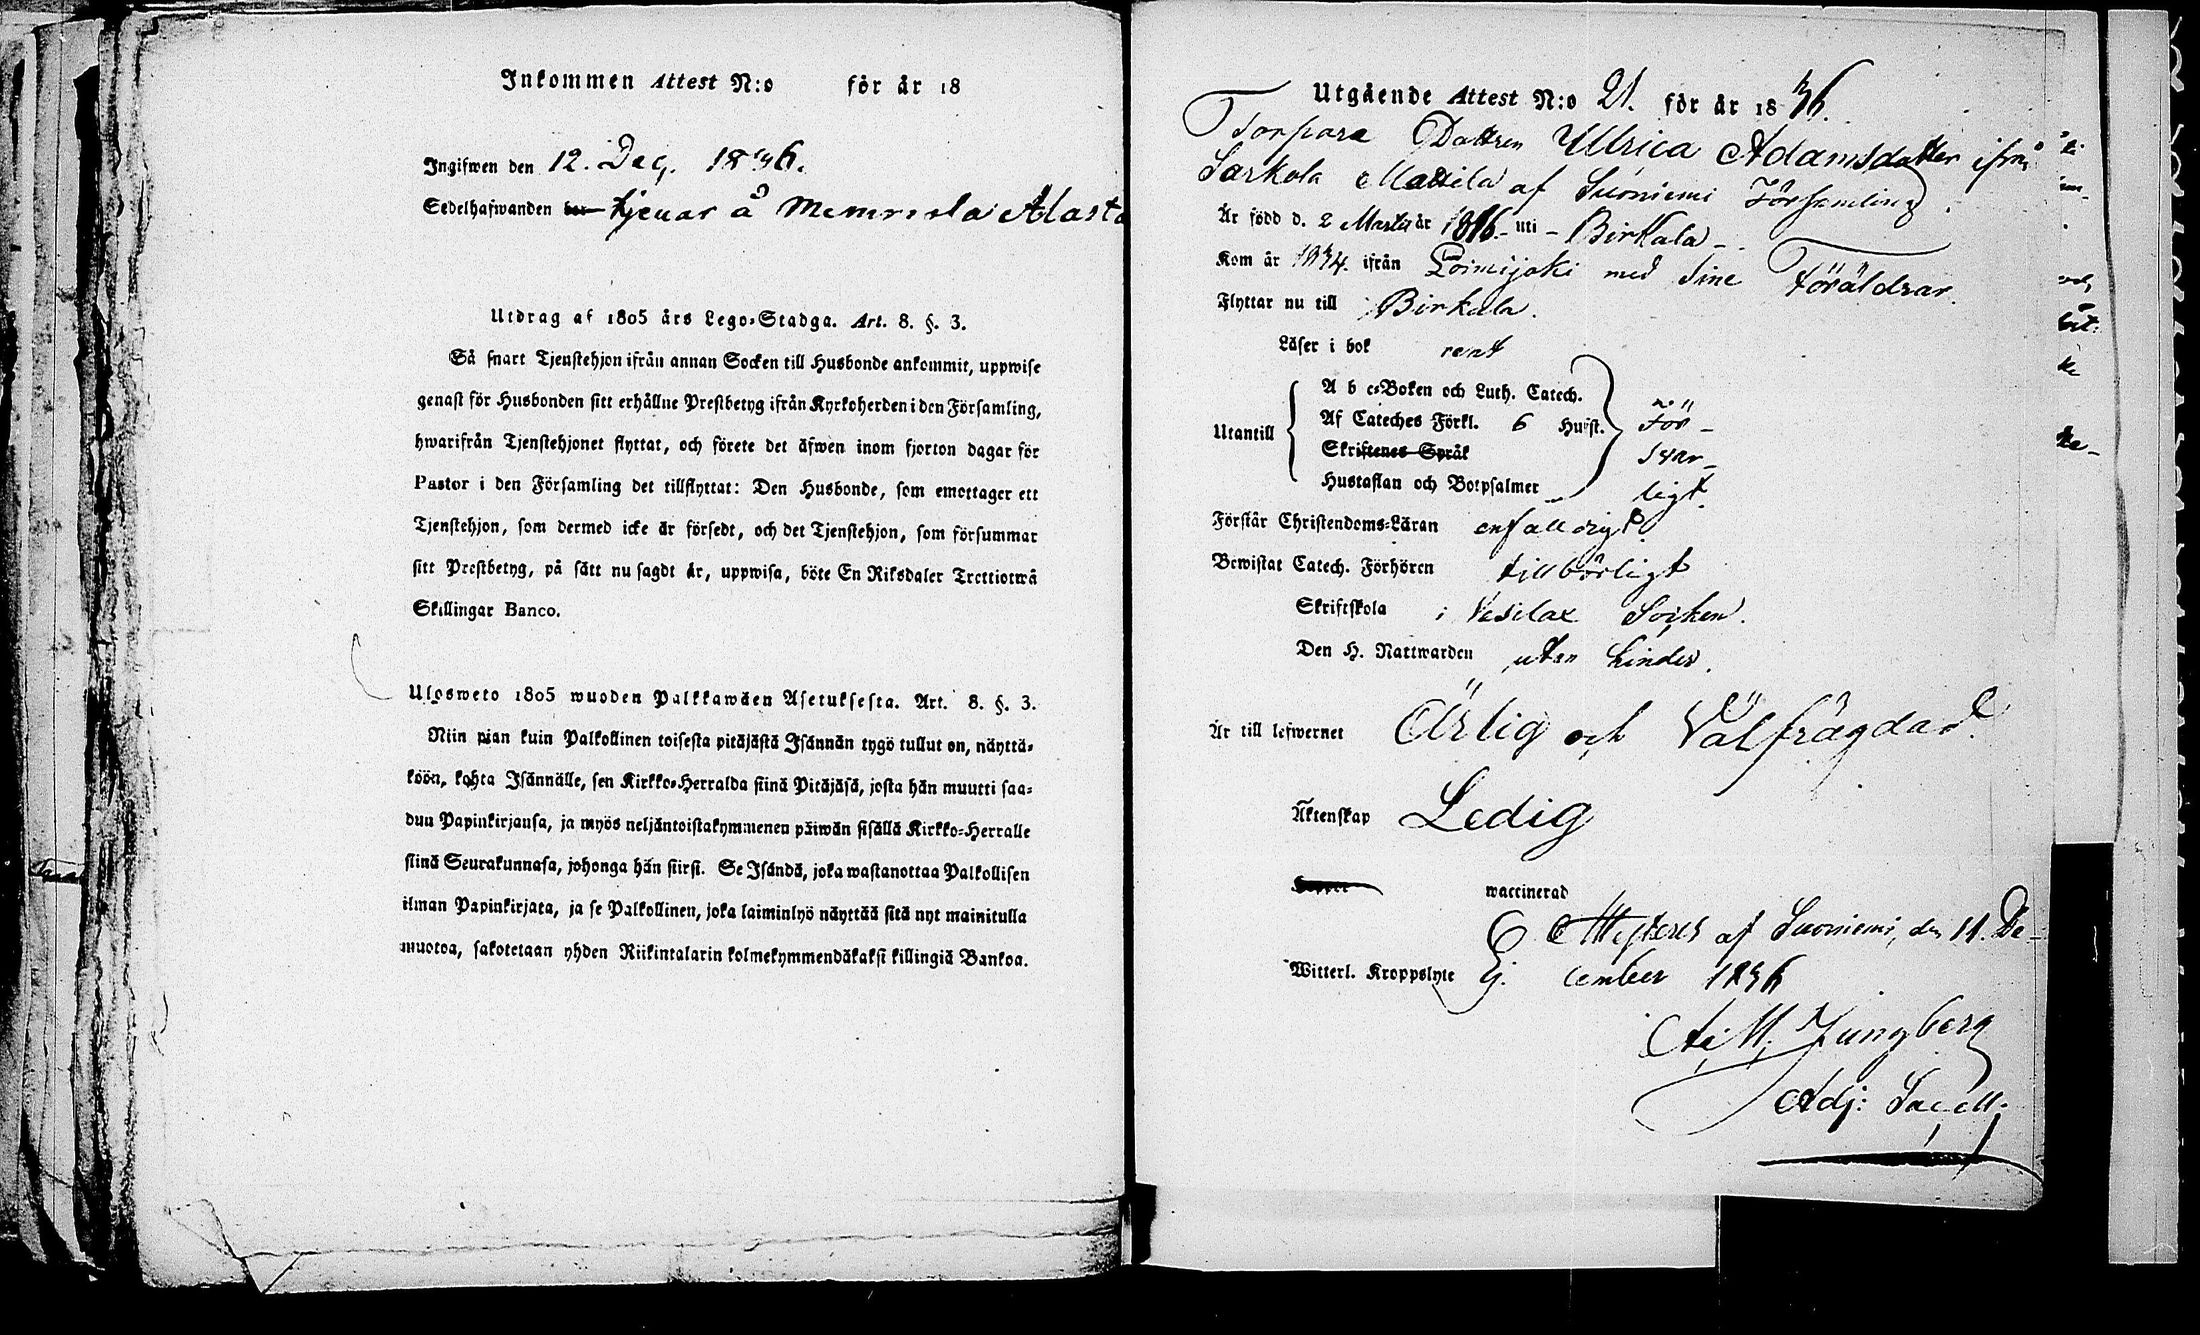 Inkommen Attest N:o för år 18
Ingifwen den 12. Dec. 1836.
Sedelhafwanden tjenar å Alasta
Utdrag af 1805 års Lego-Stadga. Art. 8. §. 3.
Så snart Tjenstehjon ifrån annan Socken till Husbonde ankommit, uppwise
genast för Husbonden sitt erhållne Prestbetyg ifrån Kyrkoherden i den Församling,
hwarifrån Tjenstehjonet flyttat, och förete det äfwen inom fjorton dagar för
Pastor i den Församling det tillflyttat: Den Husbonde, som emottager ett
Tjenstehjon, som dermed icke är försedt, och det Tjenstehjon, som försummar
sitt Prestbetyg, på sätt nu sagdt är, uppwisa, böte En Riksdaler Trettiotwå
Skillingar Banco.
Ulosweto 1805 wuoden Palkkawäen Asetuksesta. Art. 8. §. 3.
Niin pian kuin Palkollinen toisesta pitäjästä Isännän tygö tullut on, näyttä-
köön, kohta Isännälle, sen Kirkko-Herralda siinä Pitäjäsä, josta hän muutti saa-
dun Papinkirjansa, ja myös neljäntoistakymmenen päiwän sisällä Kirkko-Herralle
siinä Seurakunnasa, johonga hän siirsi. Se Isändä, joka wastanottaa Palkollisen
ilman Papinkirjata, ja se Palkollinen, joka laiminlyö näyttää sitä nyt mainitulla
muotoa, sakotetaan yhden Riikintalarin kolmekymmendäkaksi killingiä Bankoa.
Utgående Attest N:o 21. för år 1836.
Torpare Dottren Ullrica Adamsdotter ifrån
Sarkola Mattila af Suoniemi Församling.
Är född d. 2 Martii år 1816. uti Birkala
Kom år 1834. ifrån Loimijoki med sine Föräldrar.
Flyttar nu till Birkala.
Läser i bok rent
Utantill
A b c-Boken och Luth. Catech.
Af Cateches Förkl. 6 Hufst. För-
Skriftenes Språk svar-
Hustaflan och Botpsalmer ligt.
Förstår Christendoms-Läran enfalldigt.
Bewistat Catech. Förhören tillbörligt
Skriftskola i Vesilax Socken.
Den H. Nattwarden utan hinder.
Är till lefwernet Ärlig och Välfrägdad.
Äktenskap Ledig
waccinerad
Attesteres af Suoniemi, den 11. De-
Witterl. Kroppslyte Ej. cember 1836
Ljungberg
Adj: Sacell: